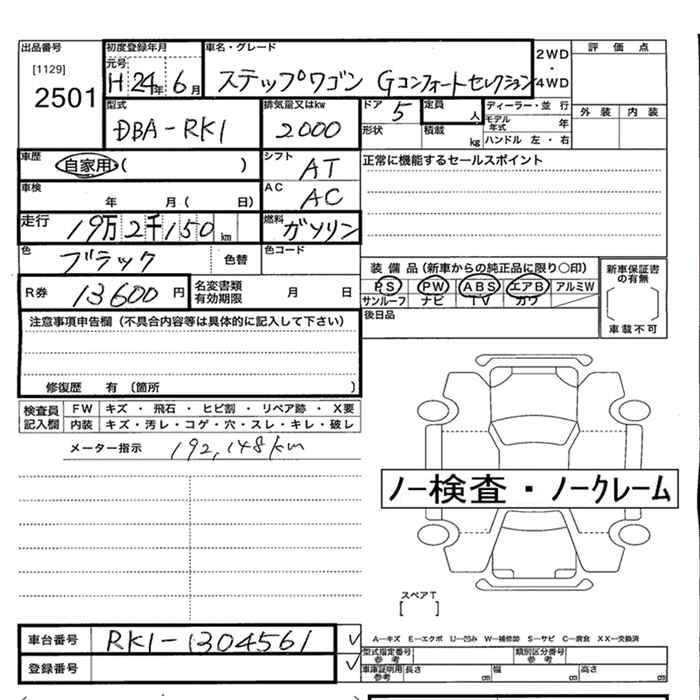 出品番号 初度登録年月 車名・グレード 2WD・4WD 評価点
[1129] 元号 H24年6月 ステップワゴン Gコンフォートセレクション
2501 外装 内装
型式 排気量又はkw ドア 5 定員 人 ディーラー・並行
DBA-RK1 2000 形状 積載 kg モデル年式 年
ハンドル 左・右
車歴 自家用・( ) シフト AT 正常に機能するセールスポイント
車検 年 月( 日) AC AC
走行 19万2千150km 燃料 ガソリン
色 ブラック 色替 色コード
装備品(新車からの純正品に限り〇印) 新車保証書の有無
R券 13600円 名変書類有効期限 月 日 PS PW ABS エアB アルミW
サンルーフ ナビ TV カワ
注意事項申告欄(不具合内容等は具体的に記入して下さい) 後日品 車載不可
修復歴 有 (箇所 )
検査員記入欄 FW キズ・飛石・ヒビ割・リペア跡・X要
内装 キズ・汚レ・コゲ・穴・スレ・キレ・破レ
メーター指示 192,148km
ノー検査・ノークレーム
スペアT
[ ]
車台番号 RK1-1304561 ✓
A-キズ E-エクボ U-凹み W-補修跡 S-サビ C-腐食 XX-交換済
登録番号 ✓ 型式指定番号参考 類別区分番号参考
車庫証明用参考 長さ cm 幅 cm 高さ cm